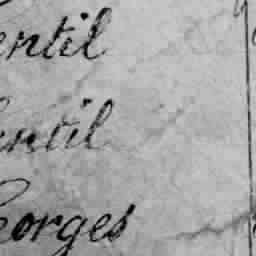 entil
entil
eorges